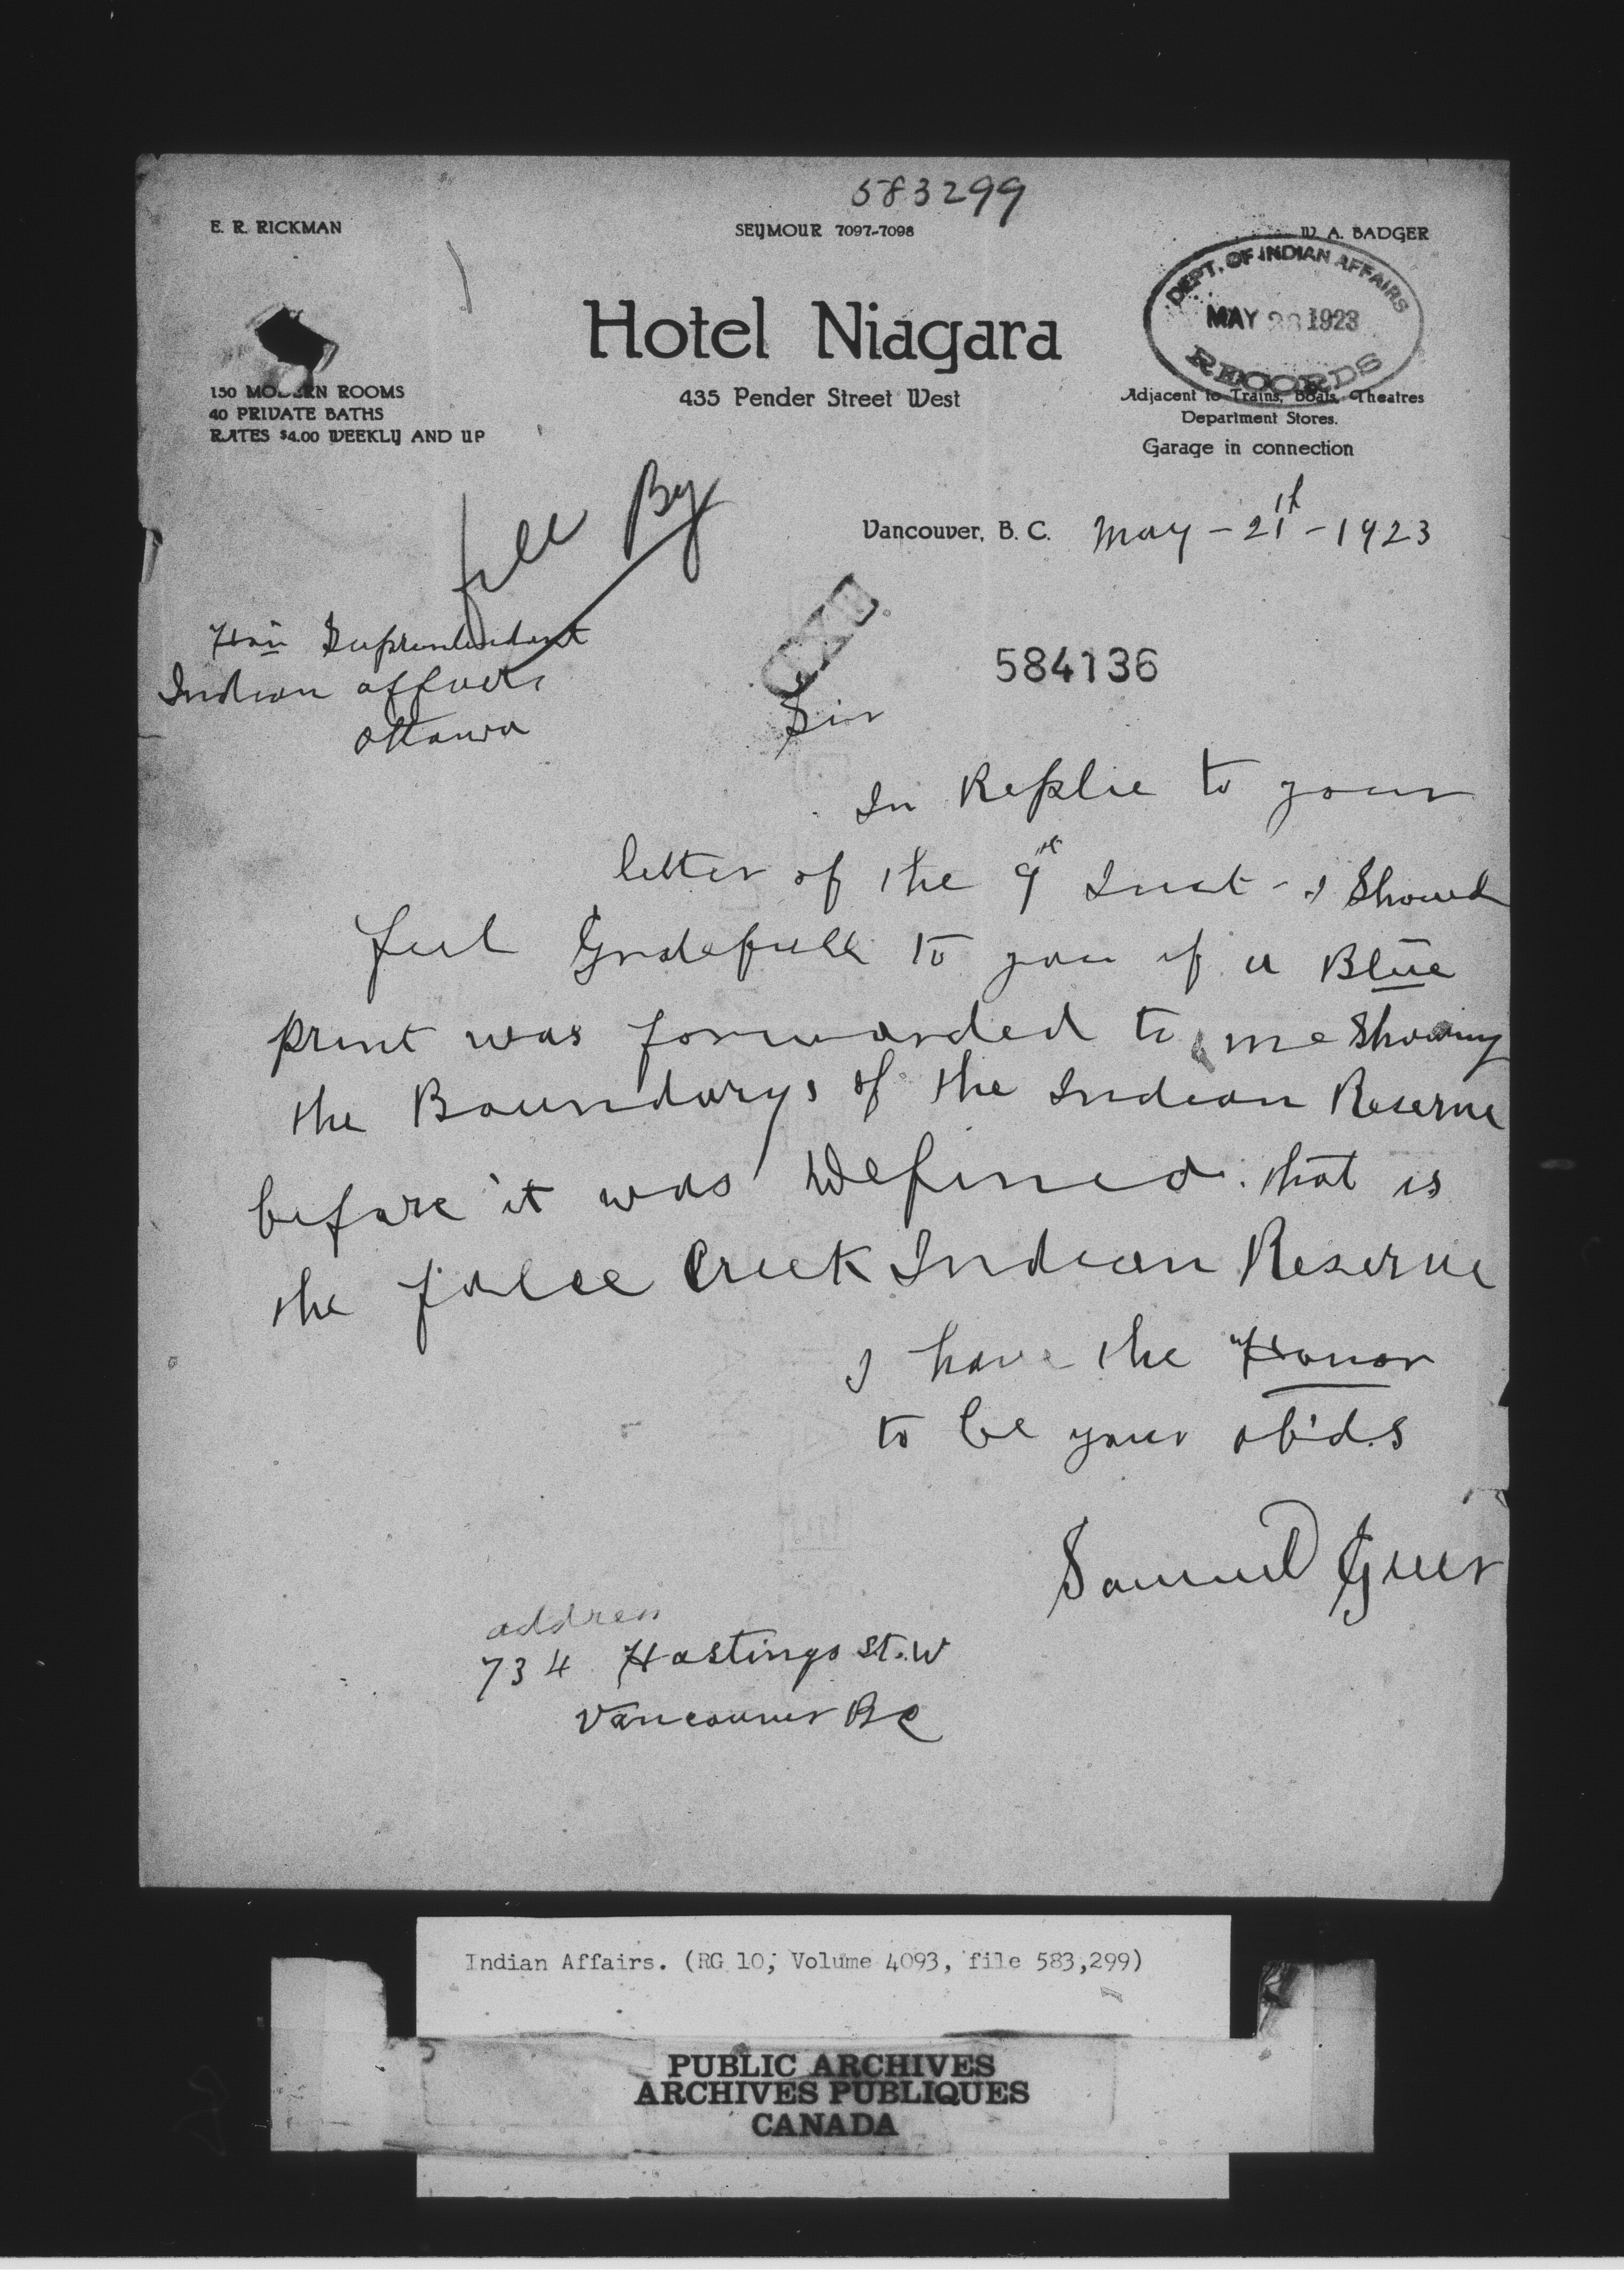 583299
E. R. RICKMAN
SEYMOUR 7097-7098
W. A. BADGER
DEPT. OF INDIAN AFFAIRS
MAY 1923
RECORDS
Hotel Niagara
150 MODERN ROOMS
40 PRIVATE BATHS
RATES $4.00 WEEKLY AND UP
435 Pender Street West
Adjacent to Trains, Boats, Theatres
Department Stores.
Garage in connection
By
Vancouver, B. C. May - 21th - 1923
Hon Suprentendant
Indian affairs
Ottawa
584136
Sir
In Replie to your
letter of the 9th Inst - I Showd
feel Gratefull to you if a Blue
print was forwarded to me Showing
the Boundarys of the Indian Reserve
before it was Defined: that is
the false Creek Indian Reserve
I have the Honor
to be your ob'd.s
Samuel Greer
address
734 Hastings St. W
Vancouver BC
Indian Affairs. (RG 10, Volume 4093, file 583,299)
PUBLIC ARCHIVES
ARCHIVES PUBLIQUES
CANADA